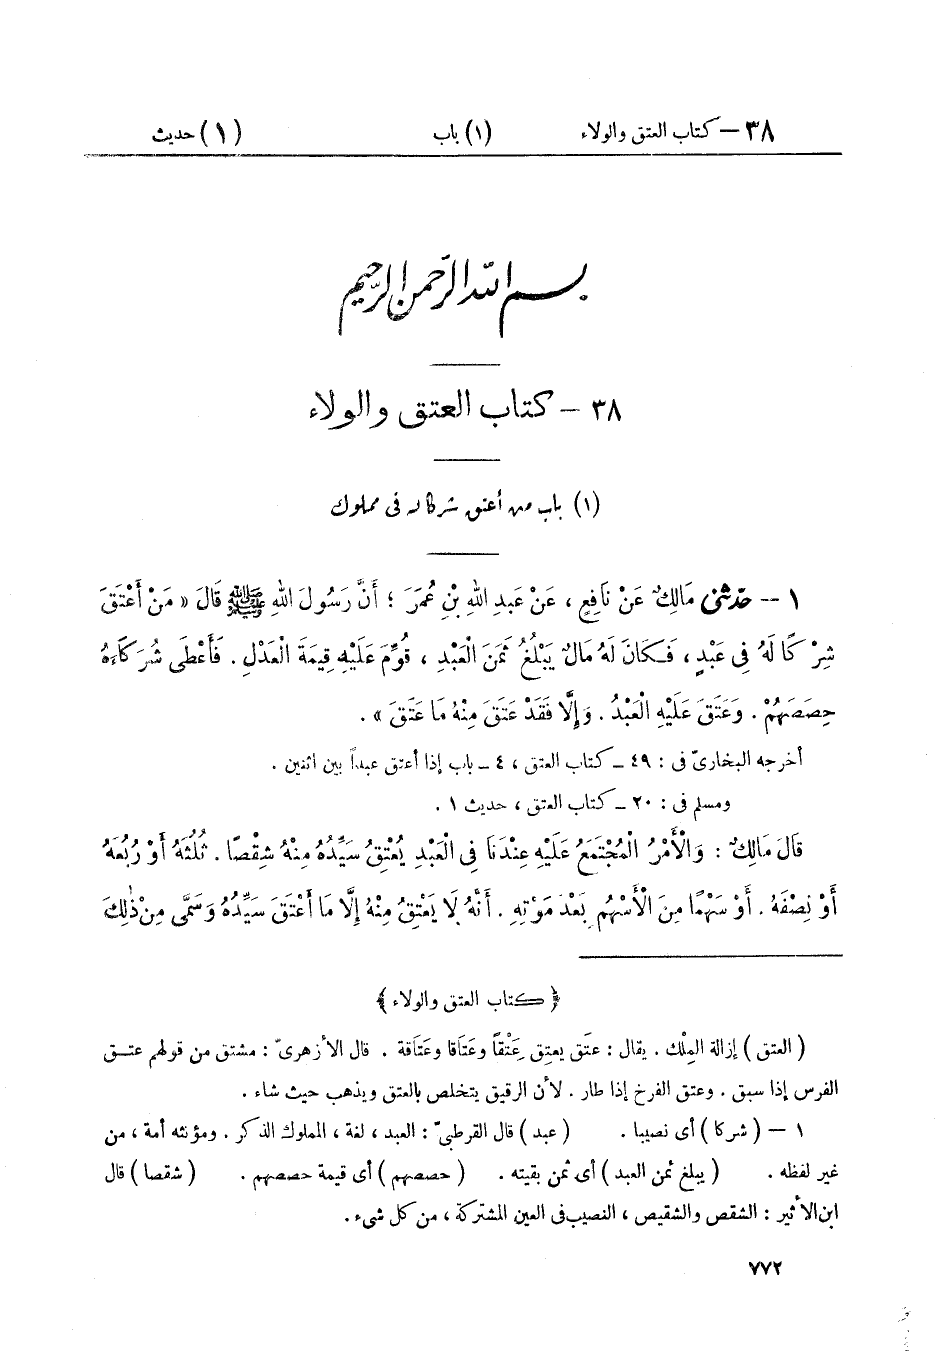 ٣٨ – كتاب العتق والولاء (١) باب (١) حديث
بسم الله الرحمن الرحيم
٣٨ – كتاب العتق والولاء
(١) باب من أعتق شركا له فى مملوك
١ – حدّثنى مَالِكٌ عَنْ نَافِعٍ ، عَنْ عَبْدِ اللهِ بْنِ عُمَرَ ؛ أَنَّ رَسُولَ اللهِ ﷺ قَالَ « مَنْ أَعْتَقَ
شِرْكًا لَهُ فِى عَبْدٍ ، فَكَانَ لَهُ مَالٌ يَبْلُغُ ثَمَنَ الْعَبْدِ ، قُوِّمَ عَلَيْهِ قِيمَةَ الْعَدْلِ . فَأَعْطَى شُرَكَاءَهُ
حِصَصَهُمْ . وَعَتَقَ عَلَيْهِ الْعَبْدُ . وَإِلَّا فَقَدْ عَتَقَ مِنْهُ مَا عَتَقَ » .
أخرجه البخارىّ فى : ٤٩ – كتاب العتق ، ٤ – باب إذا أعتق عبداً بين اثنين .
ومسلم فى : ٢٠ – كتاب العتق ، حديث ١ .
قَالَ مَالِكٌ : وَالْأَمْرُ الْمُجْتَمَعُ عَلَيْهِ عِنْدَنَا فِى الْعَبْدِ يُعْتِقُ سَيِّدُهُ مِنْهُ شِقْصًا . ثُلُثَهُ أَوْ رُبُعَهُ
أَوْ نِصْفَهُ . أَوْ سَهْمًا مِنَ الْأَسْهُمِ بَعْدَ مَوْتِهِ . أَنَّهُ لَا يَعْتِقُ مِنْهُ إِلَّا مَا أَعْتَقَ سَيِّدُهُ وَسَمَّى مِنْ ذٰلِكَ
﴿ كتاب العتق والولاء ﴾
( العتق ) إزالة المِلك . يقال : عتَق يعتِق عِتْقاً وعَتَاقا وعَتَاقة . قال الأزهرىّ : مشتق من قولهم عتق
الفرس إذا سبق . وعتق الفرخ إذا طار . لأن الرقيق يتخلص بالعتق ويذهب حيث شاء .
١ – ( شركا ) أى نصيبا . ( عبد ) قال القرطبىّ : العبد ، لغة ، المملوك الذكر . ومؤنثه أمة ، من
غير لفظه . ( يبلغ ثمن العبد ) أى ثمن بقيته . ( حصصهم ) أى قيمة حصصهم . ( شقصا ) قال
ابن الأثير : الشقص والشقيص ، النصيب فى العين المشتركة ، من كل شىء .
٧٧٢